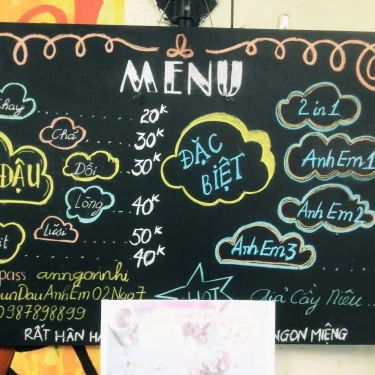 MENU
Chay 20K
Chả 30K
ĐẬU
Dồi 30K
Lòng 40K
Lưỡi 50K
40K
ĐẶC BIỆT
2 in 1
Anh Em 1
Anh Em 2
Anh Em 3
pass anngonnhi
DauAnhEm02Ngo7
0987898899
HOT
Giả Cầy Niêu...
RẤT HÂN
NGON MIỆNG